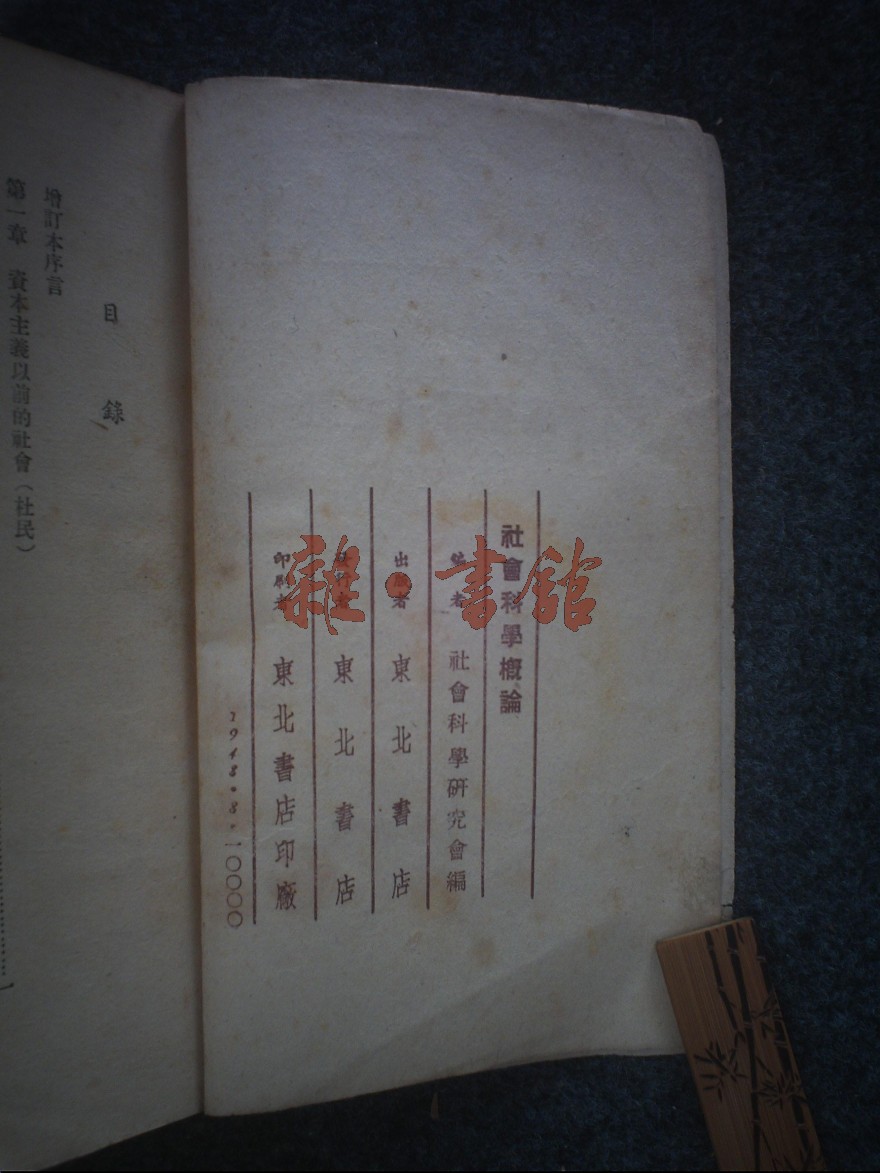 社會科學概論
編者 社會科學研究會編
出版者 東北書店
發行者 東北書店
印刷者 東北書店印廠
1948.8.一〇〇〇〇
雜·書館
目錄
增訂本序言
第一章 資本主義以前的社會（杜民）